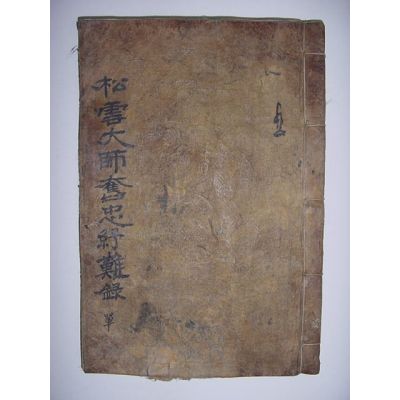 松雲大師奮忠紓難錄
單